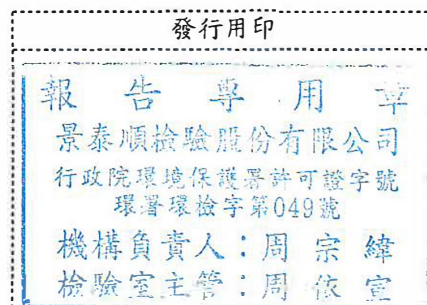 發行用印
報告專用章
景泰順檢驗股份有限公司
行政院環境保護署許可證字號
環署環檢字第049號
機構負責人：周宗緯
檢驗室主管：周依宣